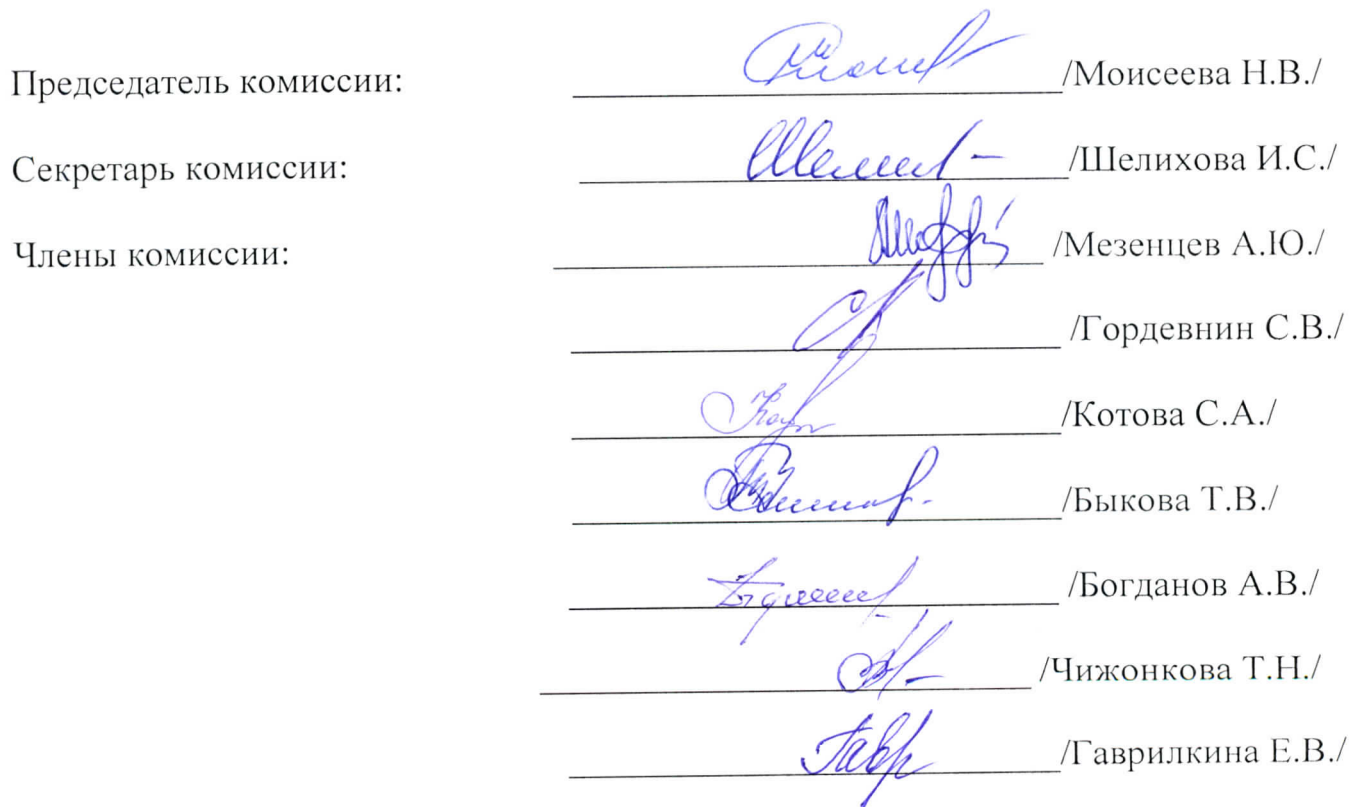 Председатель комиссии: /Моисеева Н.В./
Секретарь комиссии: /Шелихова И.С./
Члены комиссии: /Мезенцев А.Ю./
/Гордевнин С.В./
/Котова С.А./
/Быкова Т.В./
/Богданов А.В./
/Чижонкова Т.Н./
/Гаврилкина Е.В./